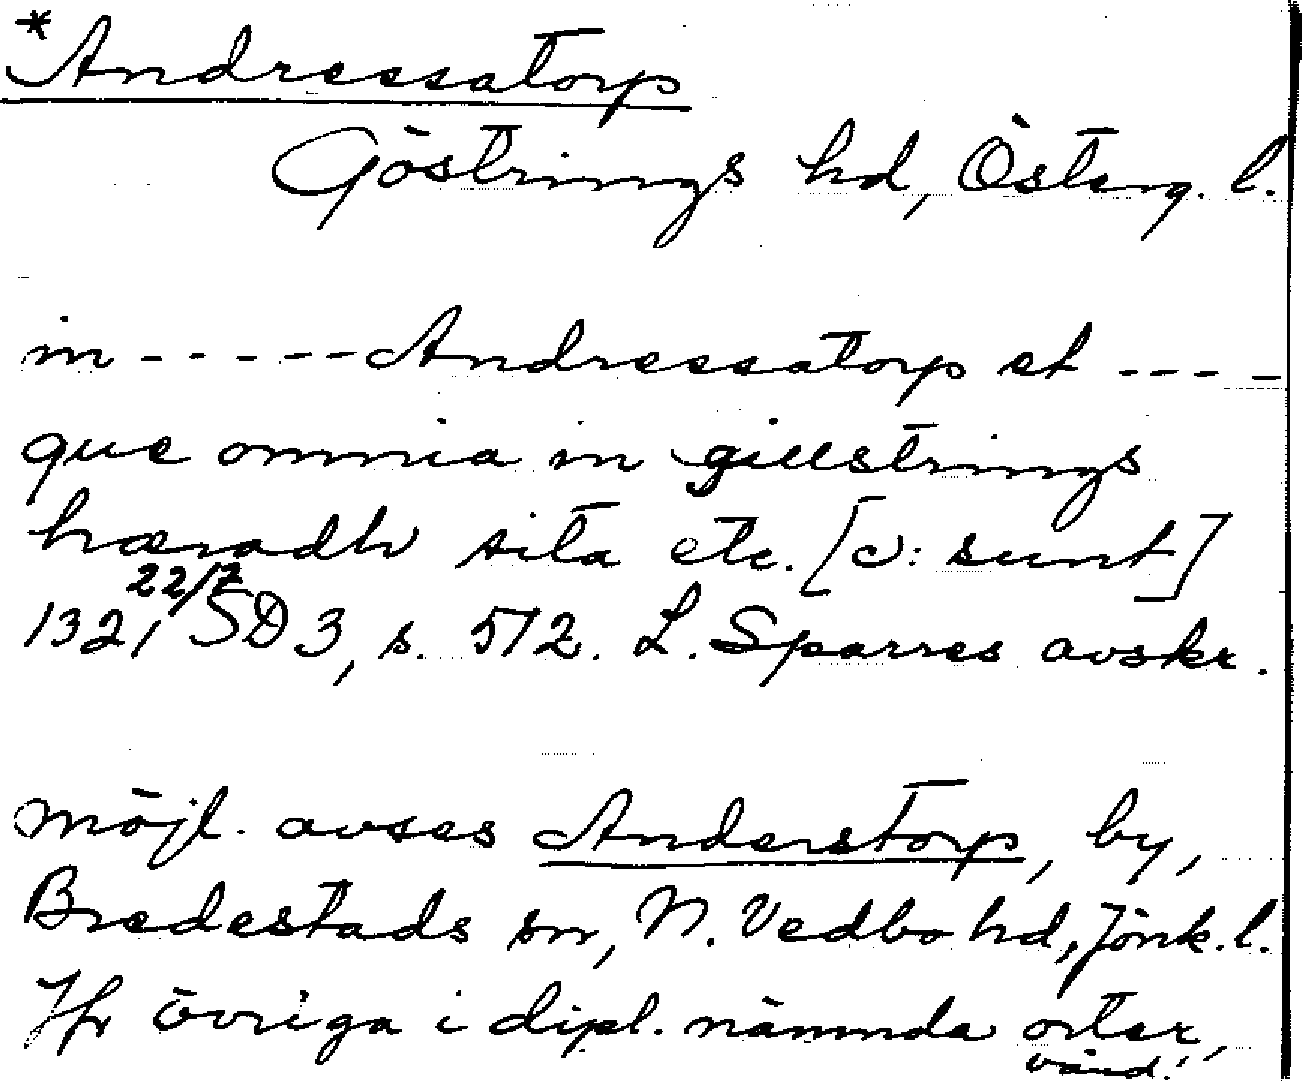 *Andressatorp
Göstrings hd, Österg. l.
in ----- Andressatorp et ----
que omnia in gillstrings
hæradh sita etc. [ɔ: sunt]
1321 22/7 SD 3, s. 512. L. Sparres avskr.
möjl. avses Anderstorp, by,
Bredestads sn, N. Vedbo hd, Jönk. l.
Jfr övriga i dipl. nämnda orter,
vänd!